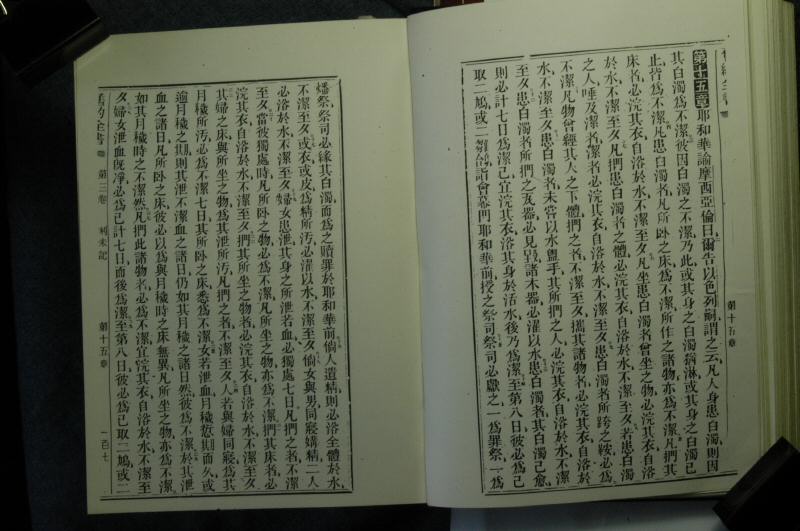 第十五章耶和華諭摩西亞倫曰爾告以色列嗣謂之云凡人身患白濁則因
其白濁爲不潔彼因白濁之不潔乃此或其身之白濁猶淋或其身之白濁已
止皆爲不潔凡患白濁者凡所臥之床爲不潔所作之諸物亦爲不潔凡捫其
床者必浣其衣自浴於水不潔至夕凡坐患白濁者曾坐之物必浣其衣自浴
於水不潔至夕凡捫患白濁者之體必浣其衣自浴於水不潔至夕若患白濁
之人唾及潔者潔者必浣其衣自浴於水不潔至夕患白濁者所跨之鞍必爲
不潔凡物曾經其人之下體捫之者不潔至夕攜其諸物者必浣其衣自浴於
水不潔至夕患白濁者未嘗以水盥手其所捫之人必浣其衣自浴於水不潔
至夕患白濁者所捫之瓦器必見毀諸木器必濯以水患白濁者其白濁已愈
則必計七日爲潔己宜浣其衣自浴其身於活水後乃爲潔至第八日彼必爲己
取二鳩或二雛鴿詣會幕門耶和華前授之祭司祭司必獻之一爲罪祭一爲
舊約全書
第十五章
燔祭祭司必緣其白濁而爲之贖罪於耶和華前倘人遺精則必浴全體於水
不潔至夕或衣或皮爲精所汚必濯以水不潔至夕倘女與男同寢媾精二人
必浴於水不潔至夕婦女患泄其身之所泄若血必獨處七日凡捫之者不潔
至夕當彼獨處時凡所臥之物必爲不潔凡所坐之物亦爲不潔捫其床者必
浣其衣自浴於水不潔至夕捫其所坐之物者必浣其衣自浴於水不潔至夕
其婦之床與所坐之物爲其泄所汚凡捫之者不潔至夕人若與婦同寢爲其
月穢所汚必爲不潔七日其所臥之床悉爲不潔女若泄血月穢愆期而久或
逾月穢之期則其泄不潔血之諸日仍如其月穢之諸日然彼爲不潔於其泄
血之諸日凡所臥之床彼必以爲與月穢時之床無異凡所坐之物亦爲不潔
如其月穢時之不潔然凡捫此諸物者必爲不潔宜浣其衣自浴於水不潔至
夕婦女泄血既淨必爲己計七日而後爲潔至第八日彼必爲己取二鳩或二
舊約全書 第三卷 利未記 第十五章 一百七